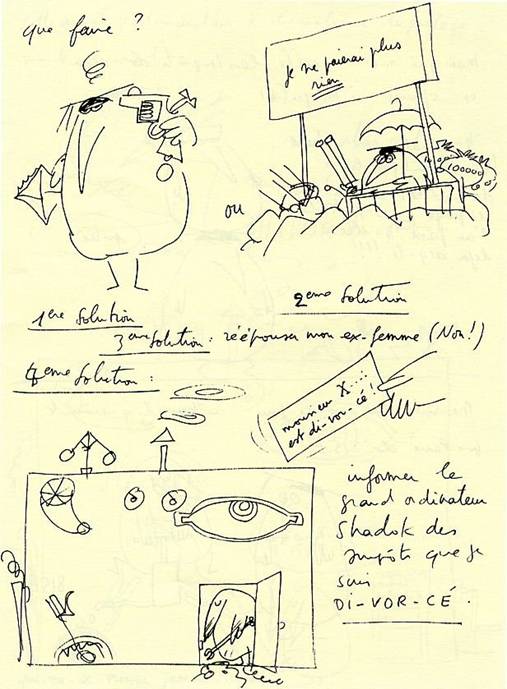 que faire ?
je ne paierai plus
rien
ou
100000
1ère solution
2ème solution
3ème solution : réépouser mon ex-femme (Non!)
4ème solution :
monsieur X....
est di-vor-cé !
informer le
grand ordinateur
Shadok des
impôts que je
suis
DI-VOR-CÉ.